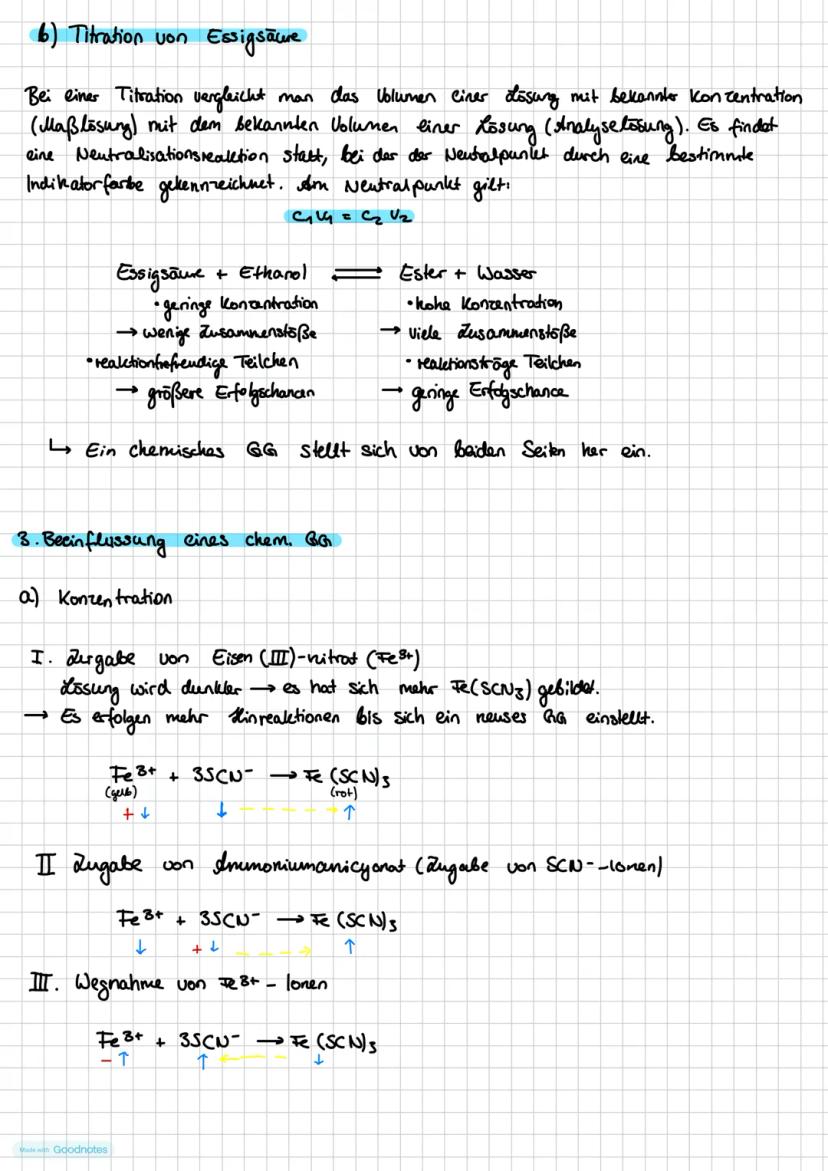 b) Titration von Essigsäure
Bei einer Titration vergleicht man das Volumen einer Lösung mit bekannter Konzentration
(Maßlösung) mit dem bekannten Volumen einer Lösung (Analyselösung). Es findet
eine Neutralisationsreaktion statt, bei der der Neutralpunkt durch eine bestimmte
Indikatorfarbe gekennzeichnet. Am Neutralpunkt gilt:
C₁V₁ = C₂ V₂
Essigsäure + Ethanol ⇌ Ester + Wasser
• geringe Konzentration • hohe Konzentration
→ wenige Zusammenstöße → viele Zusammenstöße
• reaktionsfreudige Teilchen • reaktionsträge Teilchen
→ größere Erfolgschancen → geringe Erfolgschance
↳ Ein chemisches GG stellt sich von beiden Seiten her ein.
3. Beeinflussung eines chem. GG
a) Konzentration
I. Zugabe von Eisen (III)-nitrat (Fe³⁺)
Lösung wird dunkler → es hat sich mehr Fe(SCN₃) gebildet.
→ Es erfolgen mehr Hinreaktionen bis sich ein neues GG einstellt.
Fe³⁺ + 3SCN⁻ → Fe (SCN)₃
(gelb) (rot)
+ ↓ ↓ → ↑
II Zugabe von Ammoniumanicyonat (Zugabe von SCN⁻-Ionen)
Fe³⁺ + 3SCN⁻ → Fe (SCN)₃
↓ + ↓ → ↑
III. Wegnahme von Fe³⁺ - Ionen
Fe³⁺ + 3SCN⁻ → Fe (SCN)₃
- ↑ ↑ ← ↓
Made with Goodnotes